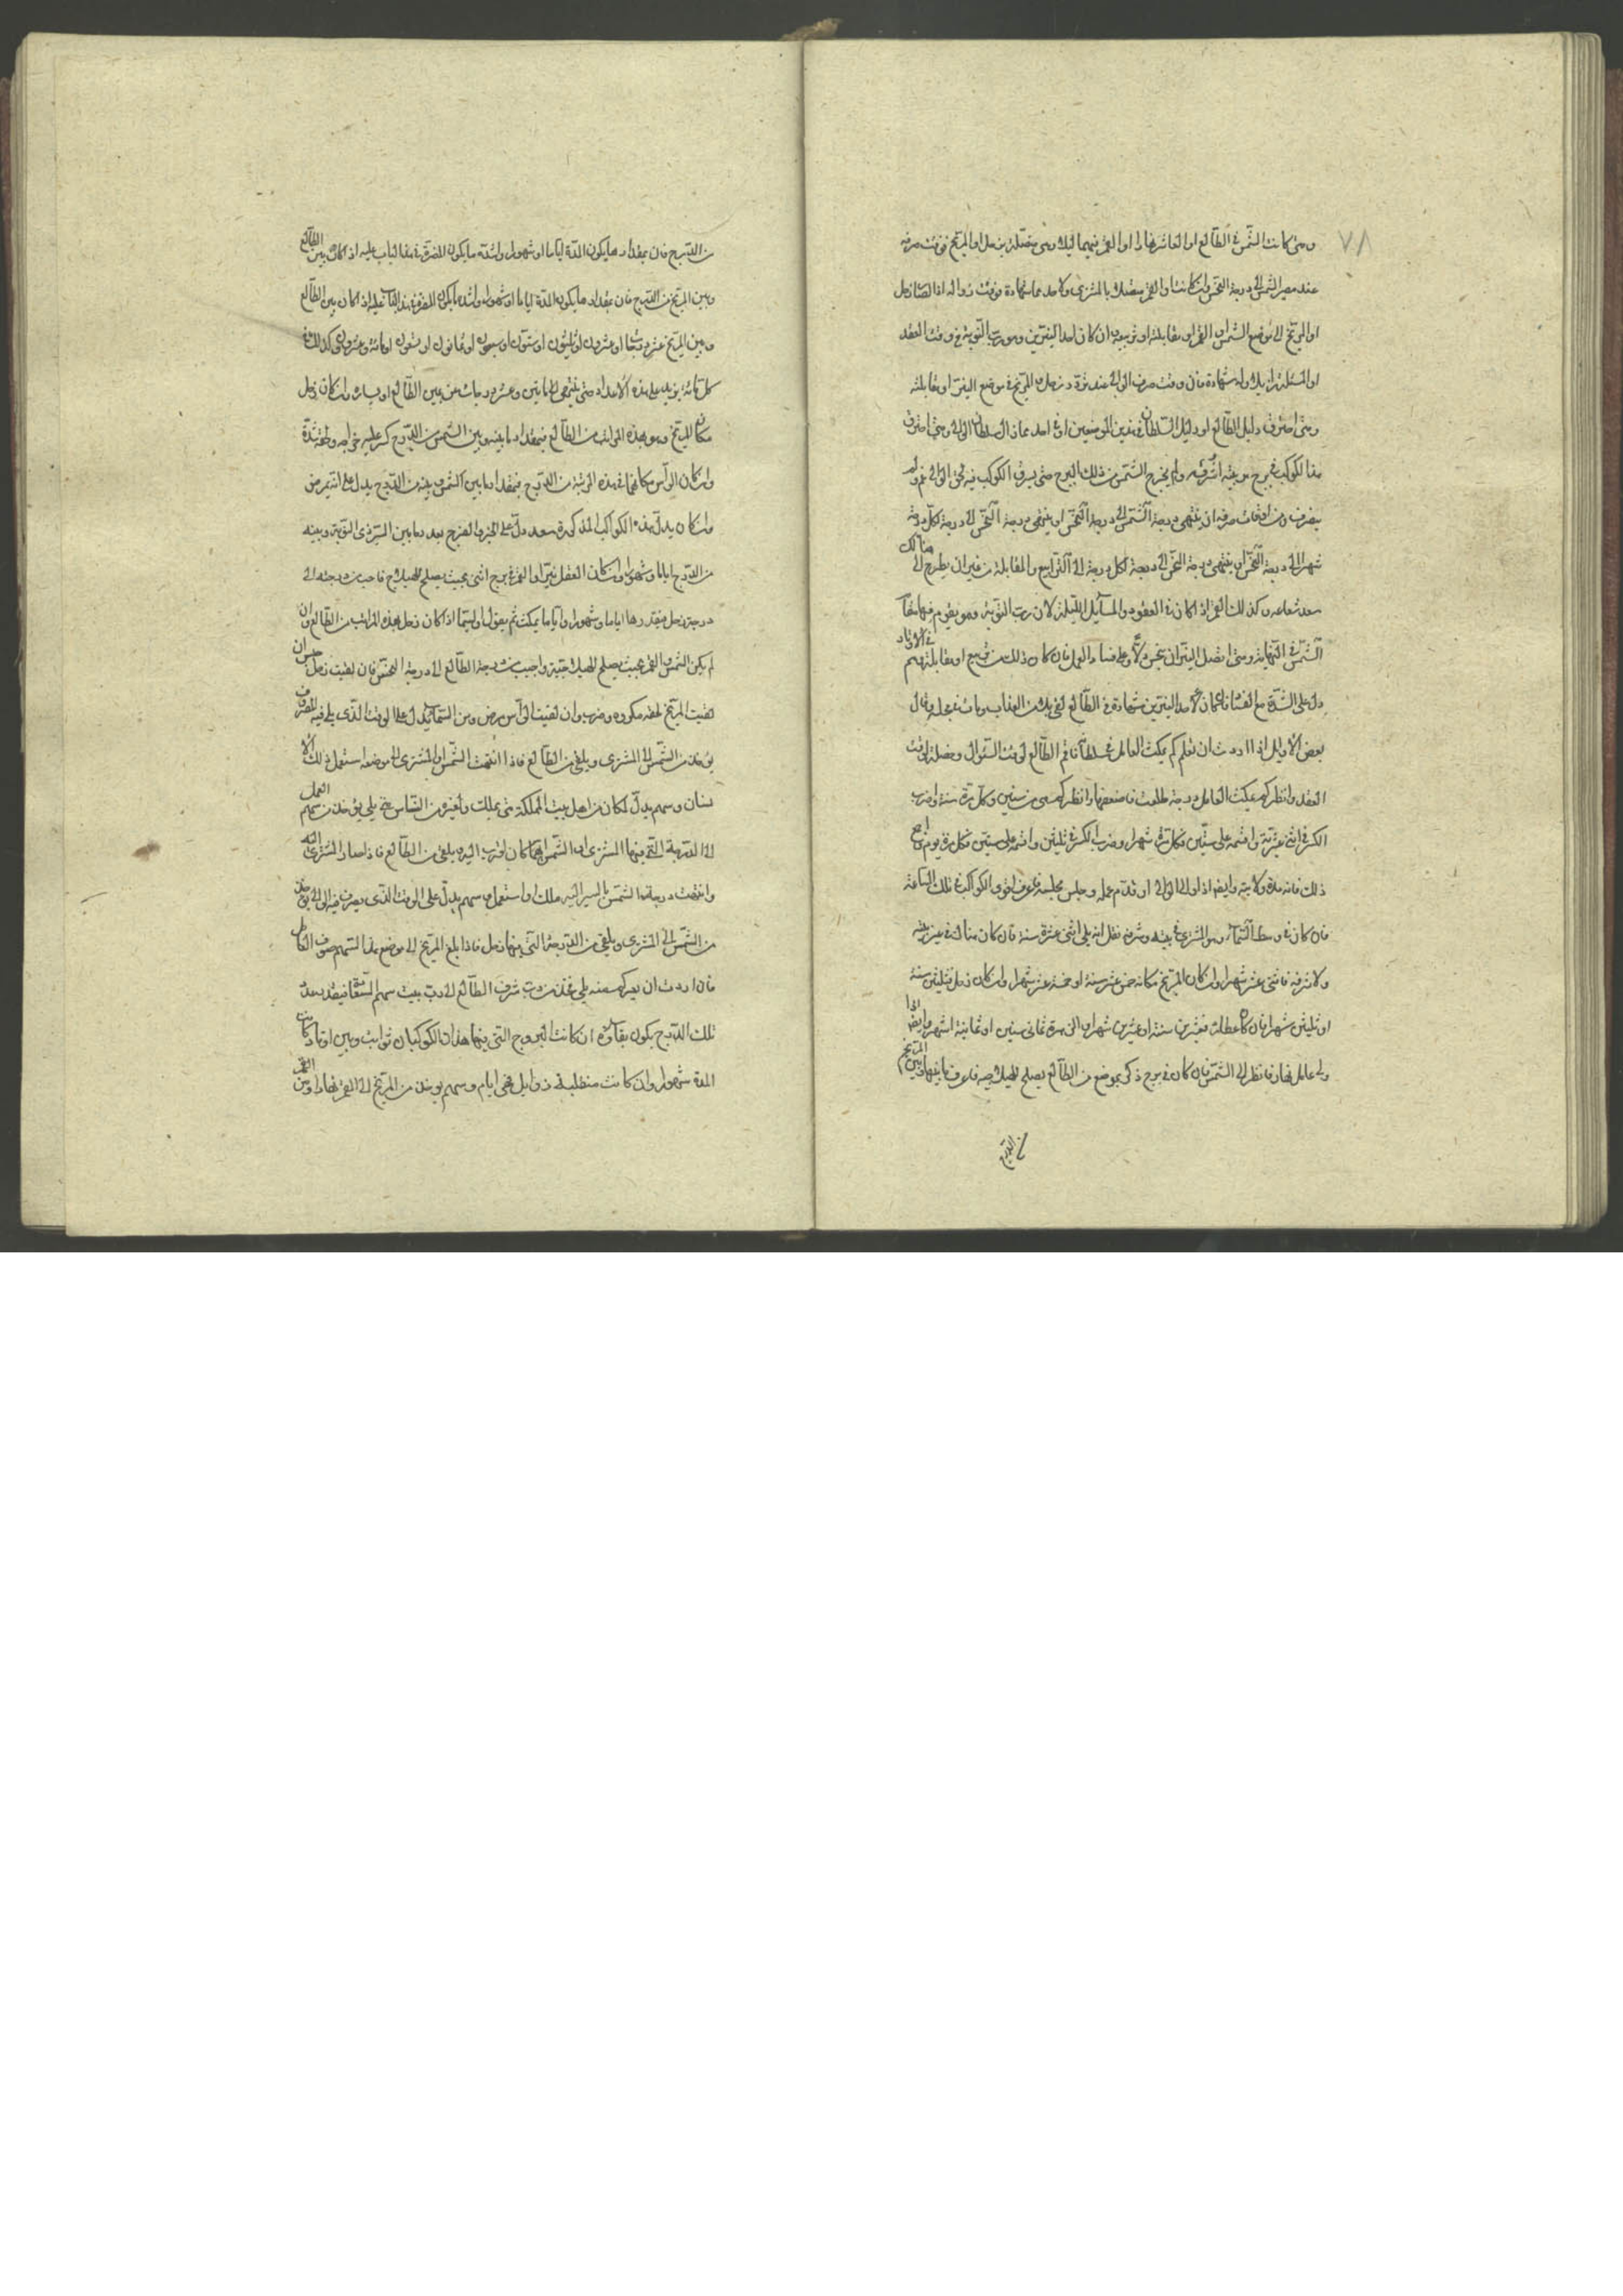 ٧٨
ومتى كانت الشمس في الطالع او العاشر نهارا او القمر فيهما ليلا وهي متصلة بزحل او المريخ فوقت صرفه
عند مصير الشمس الى درجة النحس وان كانت او القمر متصلا بالمشترى ولاحدهما شهادة فوقت زواله اذا صار زحل
او المريخ الى موضع الشمس او القمر او مقابلته او تربيعه ان كان احد النيرين وهو رب النوبة في وقت العقد
او المسئلة زايلا وله شهادة فان وقت صرف الوالى عند عودة زحل او المريخ في موضع النير او مقابلته
ومتى احترق دليل الطالع او دليل السلطان في هذين الموضعين او في احدهما زال سلطان الوالى ومتى احترق
هذا الكوكب في برج هو بيته او شرفه ولم يخرج الشمس من ذلك البرج حتى يشرق الكوكب فيه لحق الوالى غم ولم
يصرف ومن اوقات صرفه ان ينتهى درجة الشمس الى درجة النحس او ينتهى درجة النحس الى درجة لكل درجة
شهر الى درجة النحس او ينتهى درجة النحس الى درجة لكل درجة الى التربيع والمقابلة من غير ان يطرح هنالك
سعد شعاعه وكذلك القمر اذا كان في العقود والمسائل الليلية لانه رب النوبة وهو يقوم فيها مقام
الشمس في النهارية ومتى اتصل النيران بنحس دلا على فساد العمل فان كان ذلك من تربيع او مقابلة وهم في الاوتاد
دل على الشدة مع الفساد فان كان لاحد النيرين شهادة في الطالع لقى بلاء من العذاب ومات في عمله وقال
بعض الاوايل اذا اردت ان تعلم كم يمكث العامل في سلطانه فاقم الطالع لوقت السؤال وحصله لوقت
العقد وانظر كم يمكث العامل درجة طلعت فاضعفها وانظر كم هى من سنين وكل مرة سنة واضرب
الكسر في اثنى عشر واقسمه على ستين فكل مرة شهر واضرب الكسر في ثلثين واقسمه على ستين فكل مرة يوم فاجمع
ذلك فانه مدة ولايته وايضا اذا ولى الوالى او قدم عمله وجلس مجلسه فاعرف اقوى الكواكب في تلك الساعة
فان كان في وسط السماء وهو المشترى في بيته وشرفه فقل انه يلى اثنى عشرة سنة فان كان هناك في غير بيته
ولا شرفه فاثنى عشر شهرا وان كان المريخ مكانه خمس عشر سنة او خمسة عشر شهرا وان كان زحل فثلثين سنة
او ثلثين شهرا فان كان عطارد فعشرين سنة او عشرين شهرا وان الزهرة ثمانى سنين او ثمانية اشهر وايضا اذا
ولى عامل نهارا فانظر الى الشمس فان كان في برج ذكر بموضع من الطالع يصلح للهيلاجية فاعرف ما بينها وبين المريخ
من الدرج
من الدرج فان بمقدار ما يكون المدة اياما او شهورا واشد ما يكون المضرة في هذا الباب عليه اذا كان بين الطالع
وبين المريخ من الدرج فان بمقدار ما يكون المدة اياما او شهورا واشد ما يكون المضرة في هذا الباب عليه اذا كان بين الطالع
وبين المريخ عشر درجات او عشرون او ثلثون او ستون او سبعون او ثمانون او تسعون او مائة وعشرون وكذلك في
كل مائة يزيد على هذه الاعداد حتى ينتهى الى مايتين وعشر درجات من يمين الطالع او يساره وان كان زحل
مكان المريخ وهو بهذه المراتب من الطالع فبمقدار ما بينه وبين الشمس من الدرج كسر عليه خراجه ولحقته شدة
وان كان الرأس مكانهما في هذه المرتبة من الدرج فبمقدار ما بين الشمس وبينه من الدرج يدل على انه يمرض
وان كان بدل هذه الكواكب المذكورة سعد دل على الخير والفرح بعدد ما بين النير ذى النوبة وبينه
من الدرج اياما وشهورا وان كان العقد نيرا او القمر في برج انثى بحيث يصلح للهيلاج فاحسب من درجته الى
درجة زحل فبقدرها اياما وشهورا واياما يمكث ثم يعزل ولا سيما اذا كان زحل بهذه المراتب من الطالع وان
لم يكن الشمس والقمر بحيث يصلح للهيلاجية فاحسب من درجة الطالع الى درجة النحس فان لقيت زحل حبس وان
لقيت المريخ لحقه مكروه وضرب وان لقيت الرأس مرض ومن السهام ما يدل على الوقت الذى يلى فيه المصروف
يؤخذ من الشمس الى المشترى ويلقى من الطالع فاذا انتهت الشمس او المشترى الى موضعه استعمل ذلك الا
نسان وسهم يدل لمكان من اهل بيت المملكة متى يملك ولغيره من الناس متى يلى يؤخذ من سهم العمل
الى الدرجة التى فيها المشترى او الشمس ايهما كان اقرب اليه ويلقى من الطالع فاذا صار المشترى اليه
وانتهت درجات الشمس بالتسيير اليه ملك او استعمل وسهم يدل على الوقت الذى يصرف فيه الوالى يؤخذ
من الشمس الى المشترى ويلقى من الدرجة التى فيها زحل فاذا بلغ المريخ الى موضع هذا السهم صرف العامل
فان اردت ان تعرف كم سنة يلى فخذ من رب شرف الطالع الى رب بيت سهم السعادة فبقدر بعد
تلك الدرج يكون بقاؤه ان كانت البروج التى فيها هذان الكوكبان ثوابت وبين اوتاد كانت
المدة شهورا وان كانت منقلبة زوايل فهى ايام وسهم يؤخذ من المريخ الى القمر نهارا ومن القمر